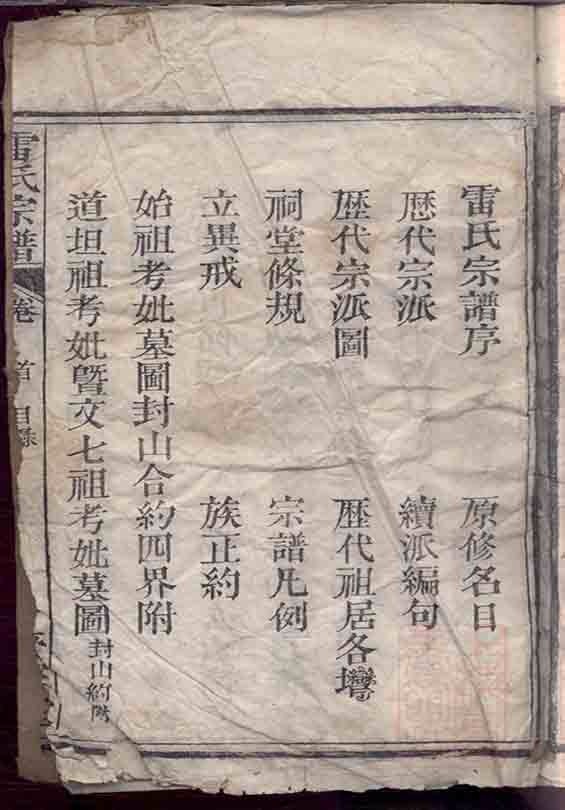 雷氏宗譜序 原修名目
歷代宗派 續派編句
歷代宗派圖 歷代祖居各壋
祠堂條規 宗譜凡例
立異戒 族正約
始祖考妣墓圖封山合約四界附
道坦祖考妣暨文七祖考妣墓圖封山約附
雷氏宗譜 卷首 目錄